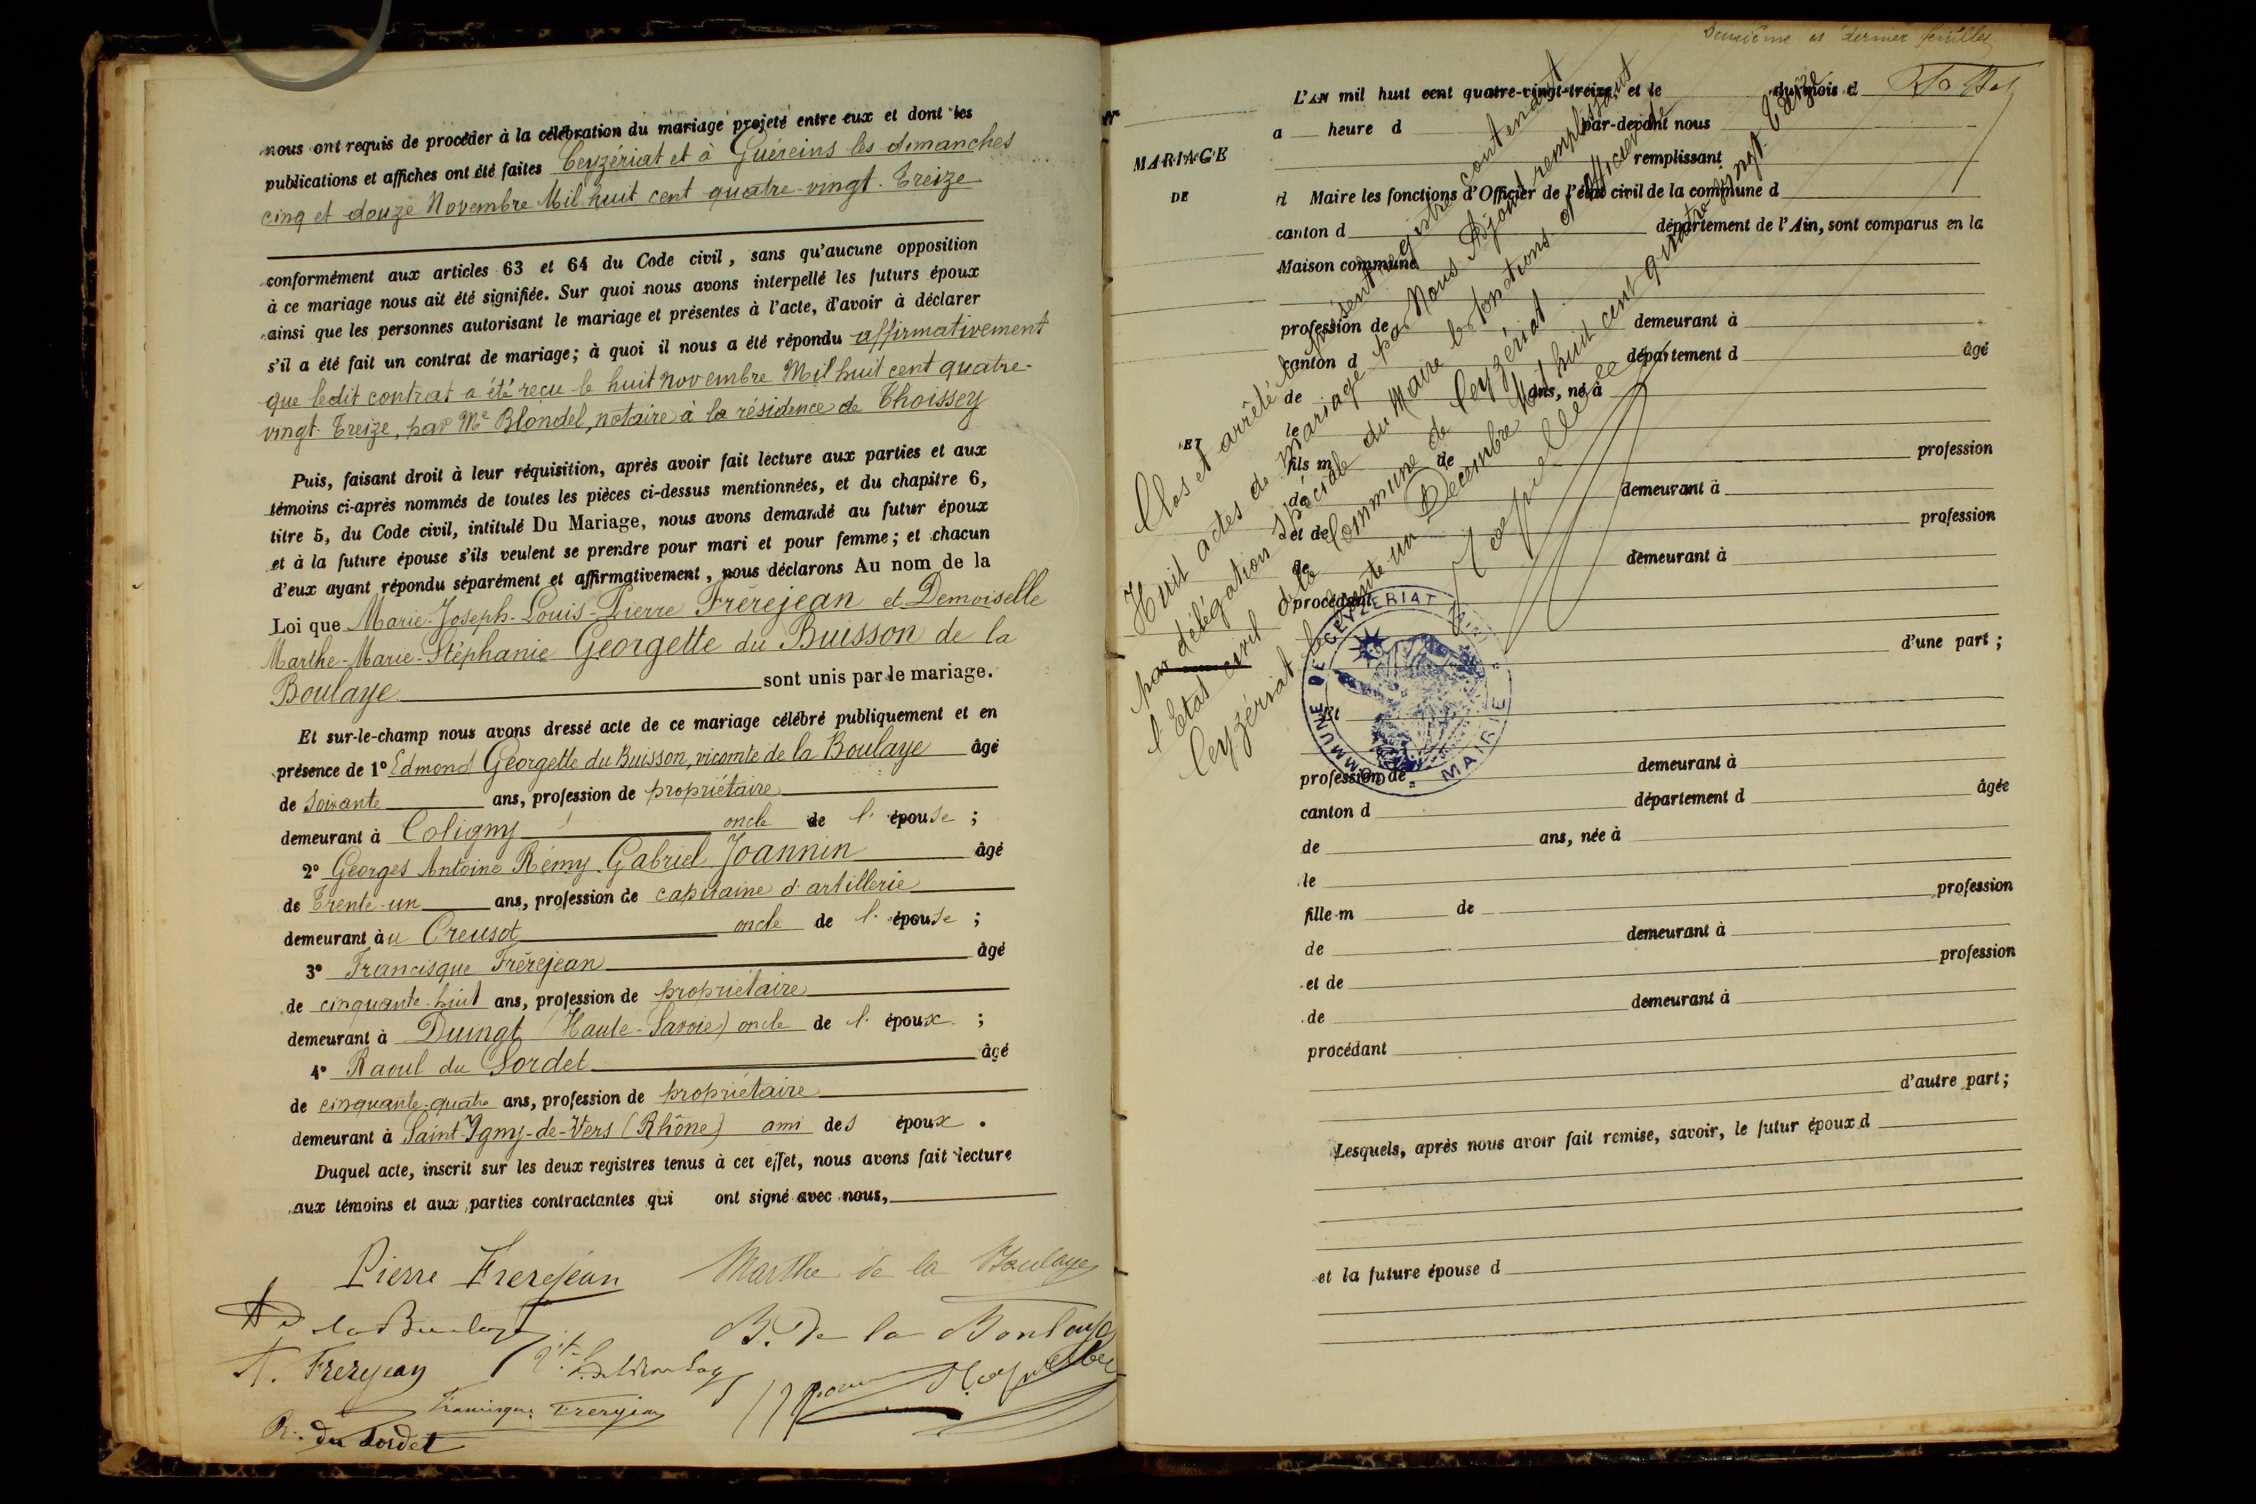 nous ont requis de procéder à la célébration du mariage projeté entre eux et dont les
publications et affiches ont été faites Ceyzériat et à Guéreins les dimanches
cinq et douze Novembre Mil huit cent quatre-vingt-Treize
conformément aux articles 63 et 64 du Code civil, sans qu'aucune opposition
à ce mariage nous ait été signifiée. Sur quoi nous avons interpellé les futurs époux
ainsi que les personnes autorisant le mariage et présentes à l'acte, d'avoir à déclarer
s'il a été fait un contrat de mariage; à quoi il nous a été répondu affirmativement
que ledit contrat a été reçu le huit novembre Mil huit cent quatre-
vingt-Treize, par Me Blondel, notaire à la résidence de Thoissey
Puis, faisant droit à leur réquisition, après avoir fait lecture aux parties et aux
témoins ci-après nommés de toutes les pièces ci-dessus mentionnées, et du chapitre 6,
titre 5, du Code civil, intitulé Du Mariage, nous avons demandé au futur époux
et à la future épouse s'ils veulent se prendre pour mari et pour femme; et chacun
d'eux ayant répondu séparément et affirmativement, nous déclarons Au nom de la
Loi que Marie-Joseph-Louis-Pierre Frèrejean et Demoiselle
Marthe-Marie-Stéphanie Georgette du Buisson de la
Boulaye sont unis par le mariage.
Et sur-le-champ nous avons dressé acte de ce mariage célébré publiquement et en
présence de 1° Edmond Georgette du Buisson, vicomte de la Boulaye âgé
de soixante ans, profession de propriétaire
demeurant à Coligny oncle de l'épouse ;
2° Georges Antoine Rémy Gabriel Joannin âgé
de Trente-un ans, profession de capitaine d'artillerie
demeurant au Creusot oncle de l'épouse ;
3° Francisque Frèrejean âgé
de cinquante-huit ans, profession de propriétaire
demeurant à Duingt (Haute-Savoie) oncle de l'époux ;
4° Raoul du Sordet âgé
de cinquante-quatre ans, profession de propriétaire
demeurant à Saint-Igny-de-Vers (Rhône) ami des époux .
Duquel acte, inscrit sur les deux registres tenus à cet effet, nous avons fait lecture
aux témoins et aux parties contractantes qui ont signé avec nous,
Pierre Frerejean Marthe de la Boulaye
de la Boulaye B. de la Boulaye
A. Frerejean
Francisque Frerejean
R. du Sordet
Deuxième et dernier feuillet
N°
MARIAGE
DE
ET
L'AN mil huit cent quatre-vingt-treize, et le du mois d
a heure d par-devant nous
remplissant
d Maire les fonctions d'Officier de l'état civil de la commune d
canton d département de l'Ain, sont comparus en la
Maison commune
profession de demeurant à
canton d département d âgé
de ans, né à
le
fils m de profession
de demeurant à
et de profession
de demeurant à
procédant
d'une part ;
Et
profession de demeurant à
canton d département d âgée
de ans, née à
le
fille m de profession
de demeurant à
et de profession
de demeurant à
procédant
d'autre part ;
Lesquels, après nous avoir fait remise, savoir, le futur époux d
et la future épouse d
Clos et arrêté le présent registre contenant
Huit actes de mariage par Nous Adjoint remplissant
par délégation spéciale du Maire les fonctions d'officier de
l'Etat civil de la Commune de Ceyzériat.
Ceyzériat le trente-un Décembre Mil huit cent quatre-vingt-treize
COMMUNE DE CEYZERIAT (AIN)
MAIRIE